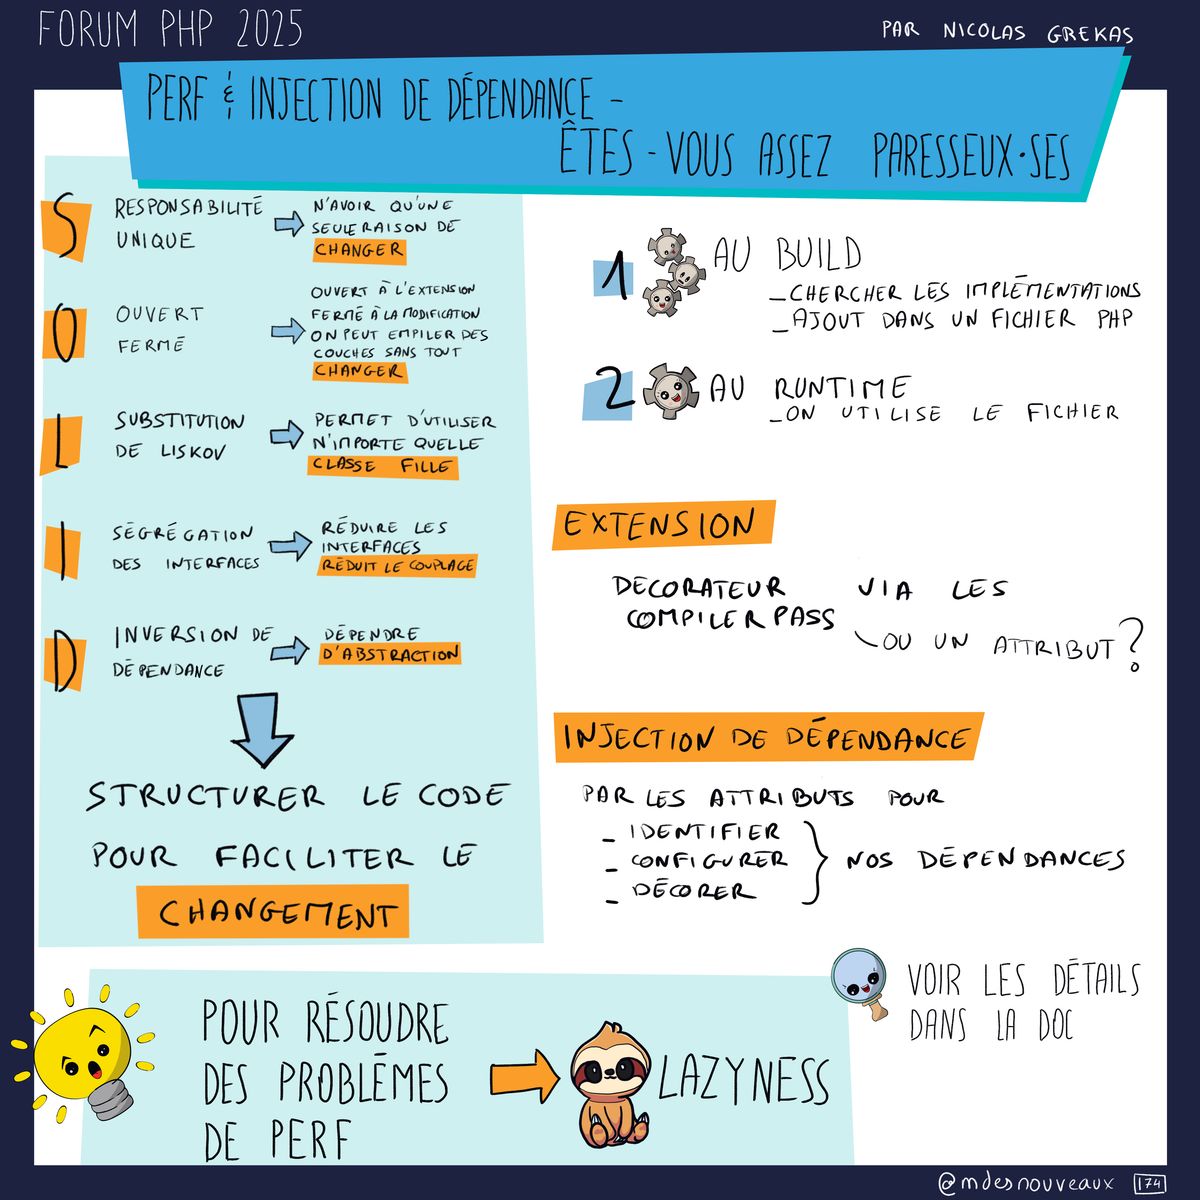 FORUM PHP 2025
PAR NICOLAS GREKAS
PERF & INJECTION DE DÉPENDANCE -
ÊTES-VOUS ASSEZ PARESSEUX·SES
S
RESPONSABILITÉ
UNIQUE
N'AVOIR QU'UNE
SEULE RAISON DE
CHANGER
O
OUVERT
FERMÉ
OUVERT À L'EXTENSION
FERMÉ À LA MODIFICATION
ON PEUT EMPILER DES
COUCHES SANS TOUT
CHANGER
L
SUBSTITUTION
DE LISKOV
PERMET D'UTILISER
N'IMPORTE QUELLE
CLASSE FILLE
I
SÉGRÉGATION
DES INTERFACES
RÉDUIRE LES
INTERFACES
RÉDUIT LE COUPLAGE
D
INVERSION DE
DÉPENDANCE
DÉPENDRE
D'ABSTRACTION
STRUCTURER LE CODE
POUR FACILITER LE
CHANGEMENT
1 AU BUILD
- CHERCHER LES IMPLÉMENTATIONS
- AJOUT DANS UN FICHIER PHP
2 AU RUNTIME
- ON UTILISE LE FICHIER
EXTENSION
DECORATEUR VIA LES
COMPILER PASS
OU UN ATTRIBUT ?
INJECTION DE DÉPENDANCE
PAR LES ATTRIBUTS POUR
- IDENTIFIER
- CONFIGURER
- DÉCORER
NOS DÉPENDANCES
VOIR LES DÉTAILS
DANS LA DOC
POUR RÉSOUDRE
DES PROBLÉMES
DE PERF
LAZYNESS
@mdesnouveaux 174